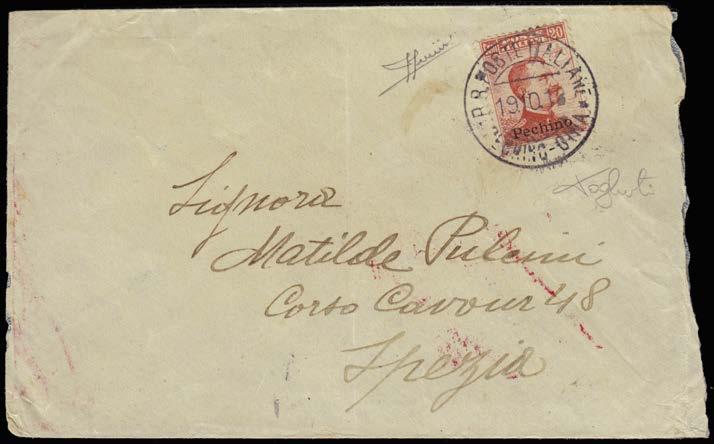 20
R.R. POSTE ITALIANE
19.10.18
Pechino
PECHINO-CINA
Signora
Matilde Pulcini
Corso Cavour 48
Spezia